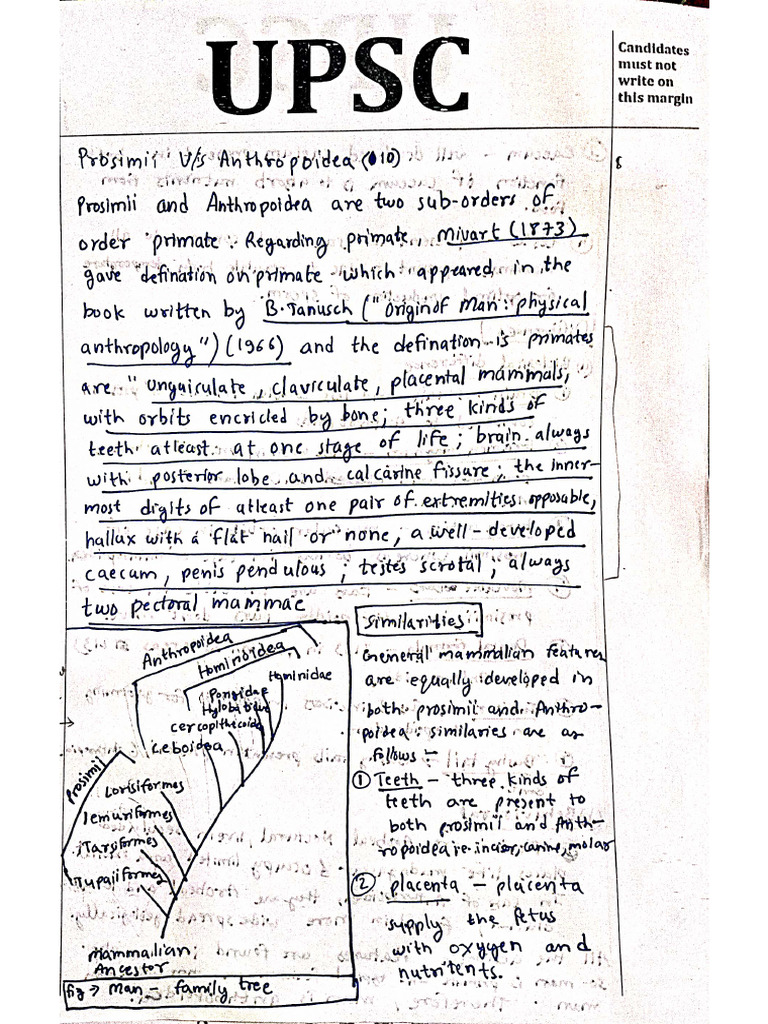 UPSC
Candidates
must not
write on
this margin
Prosimii V/s Anthropoidea (10)
Prosimii and Anthropoidea are two sub-orders of
order primate. Regarding primate Mivart (1873)
gave defination on primate which appeared in the
book written by B. Tanusch ("Origin of Man: physical
anthropology") (1966) and the defination is primates
are "Unguiculate, claviculate, placental mammals,
with orbits encricled by bone; three kinds of
teeth atleast at one stage of life; brain always
with posterior lobe and calcarine fissure; the inner-
most digits of atleast one pair of extremities opposable,
hallux with a flat nail or none; a well-developed
caecum, penis pendulous; testes scrotal; always
two pectoral mammae
Anthropoidea
Hominoidea
Hominidae
Pongidae
Hylobatidae
Cercopithecoida
Ceboidea
Prosimii
Lorisiformes
Lemuriformes
Tarsiformes
Tupaiiformes
Mammalian
Ancestor
fig → Man - family tree
Similarities
General mammalian features
are equally developed in
both prosimii and Anthro-
poidea. similaries are as
follows :-
① Teeth - three kinds of
teeth are present to
both prosimii and Anth-
ropoidea i.e. incisor, canine, molar
② placenta - placenta
supply the fetus
with oxygen and
nutritents.